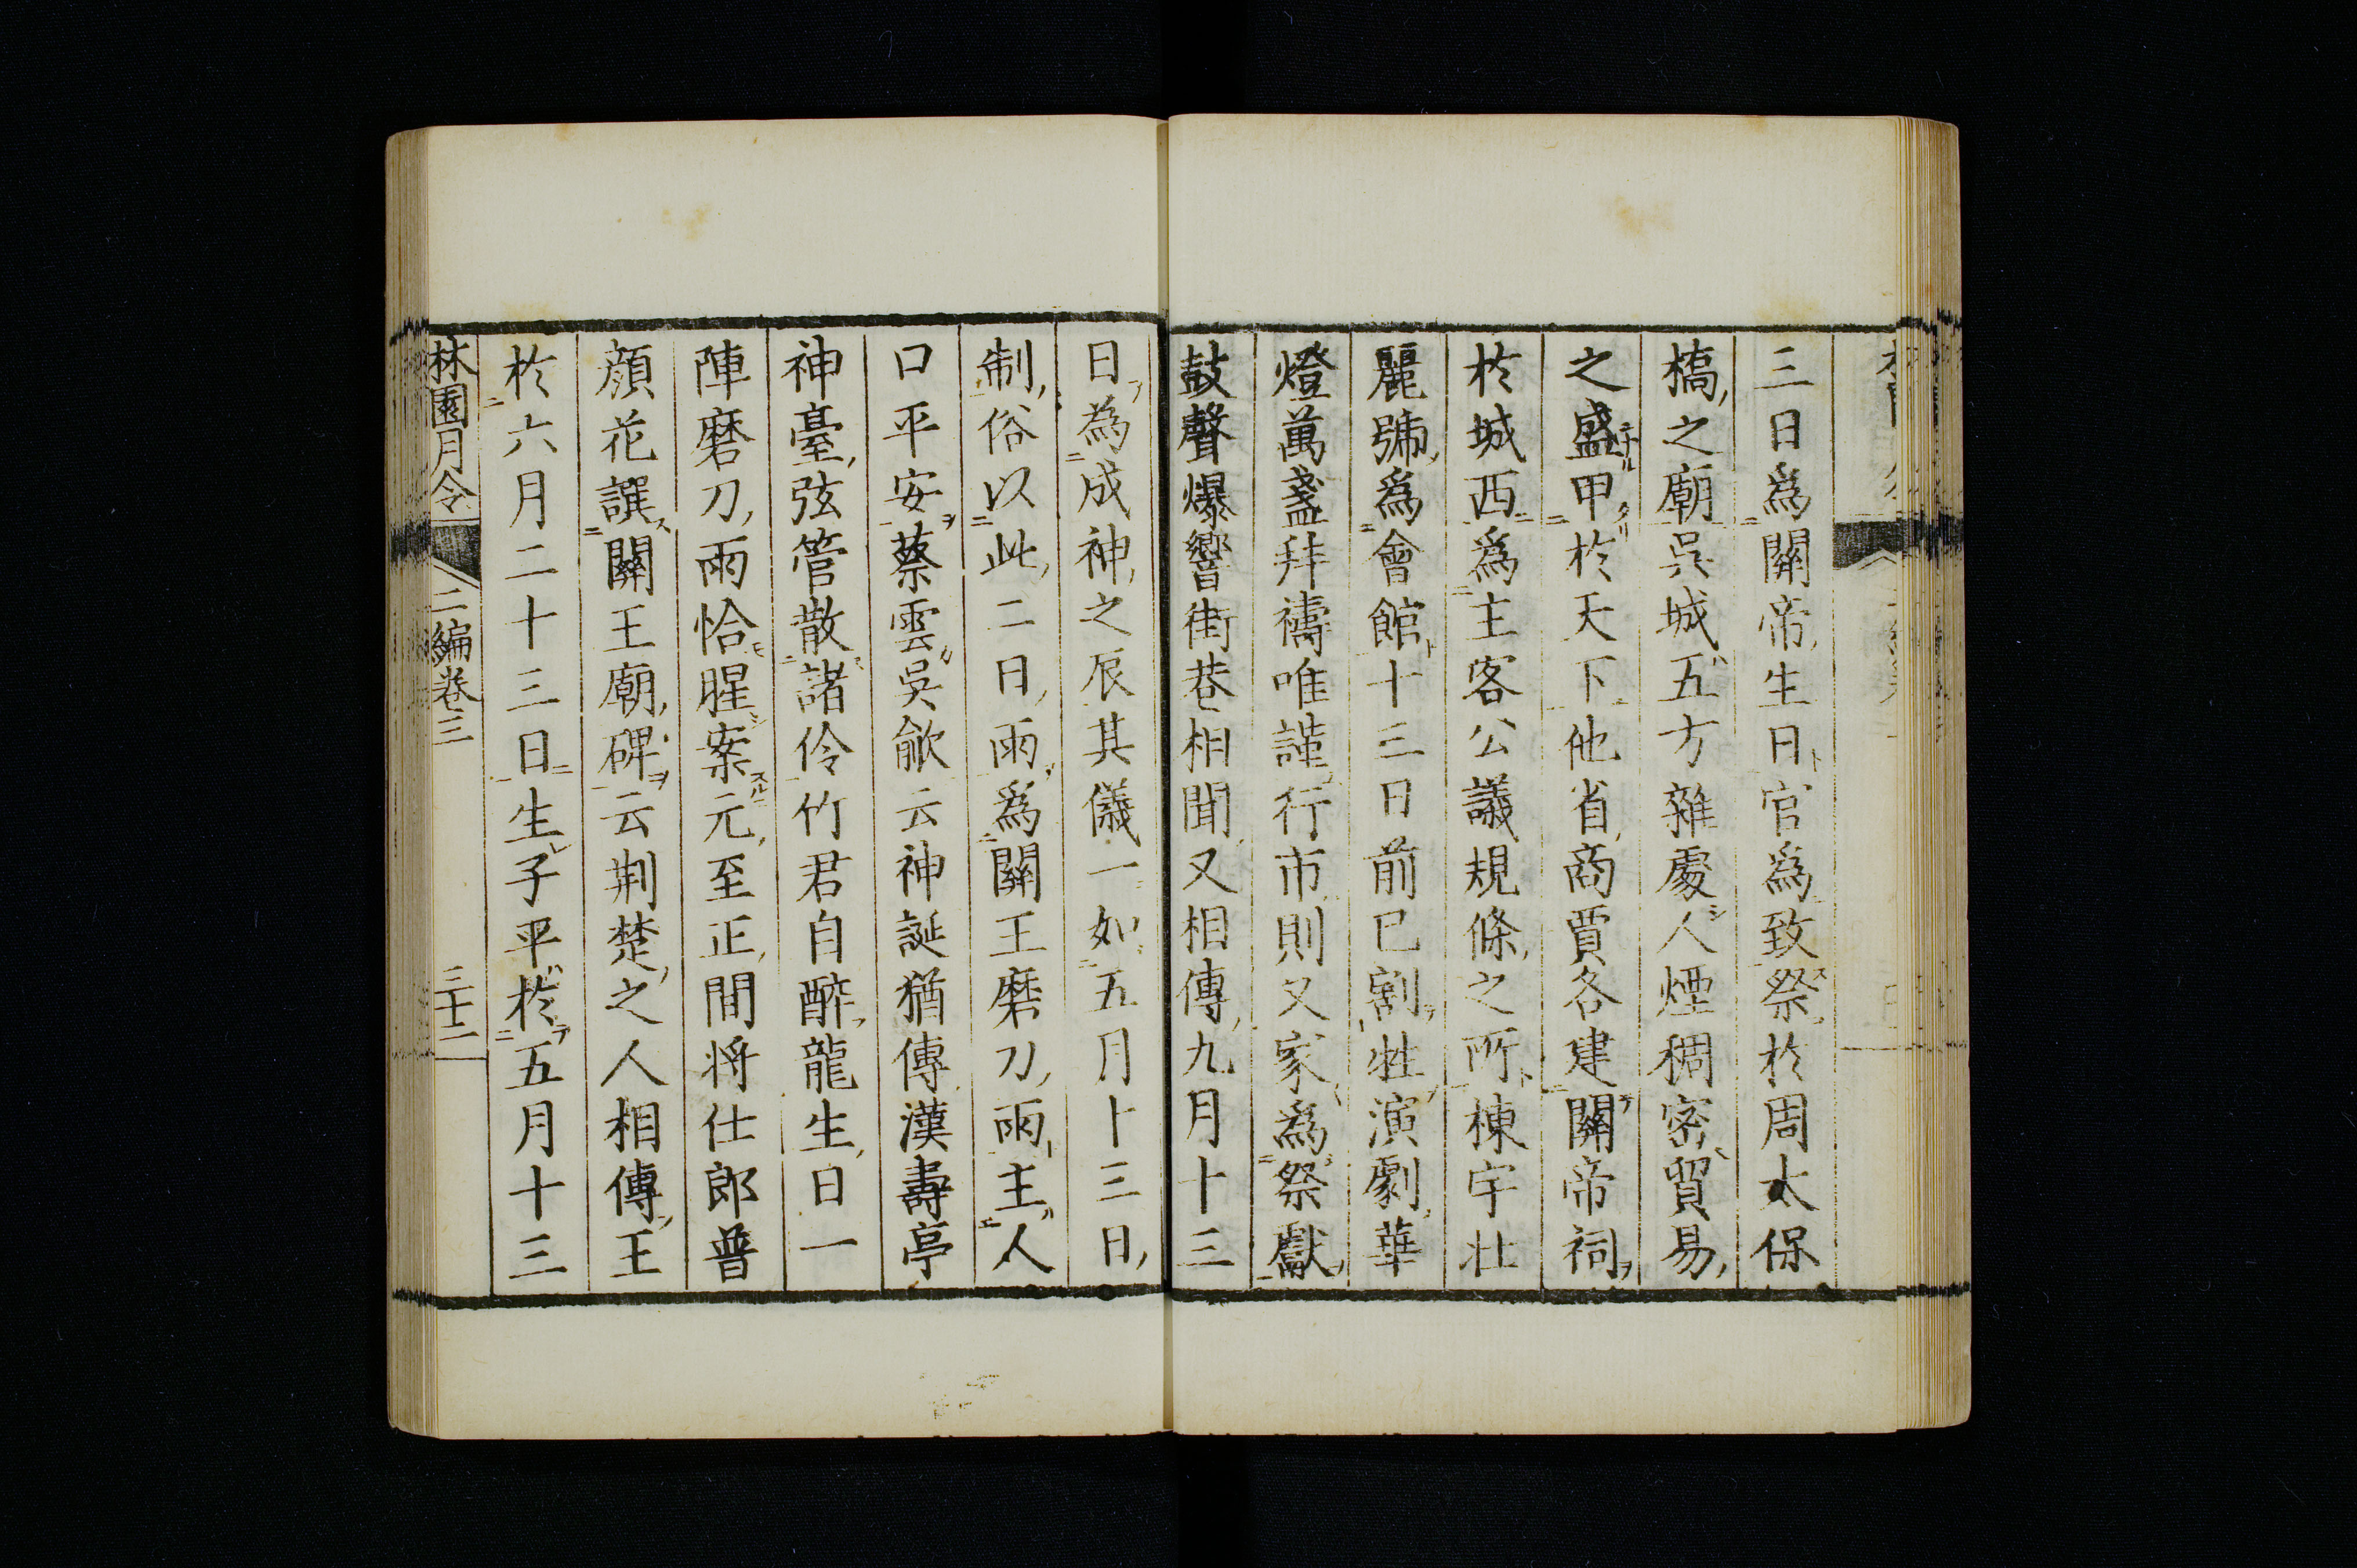 三日爲關帝生日官爲致祭於周太保
橋之廟吳城五方雜處人煙稠密貿易
之盛甲於天下他省商賈各建關帝祠
於城西爲主客公議規條之所棟宇壮
麗號爲會館十三日前已割牲演劇華
燈萬盞拜禱唯謹行市則又家爲祭獻
鼓聲爆響街巷相聞又相傳九月十三
日為成神之辰其儀一如五月十三日
制俗以此二日雨爲關王磨刀雨主人
口平安蔡雲吳歈云神誕猶傳漢壽亭
神臺弦管散諸伶竹君自醉龍生日一
陣磨刀雨恰腥案元至正間将仕郎普
顔花譔關王廟碑云荆楚之人相傳王
於六月二十三日生子平於五月十三
林園月令 二編卷三 三十二